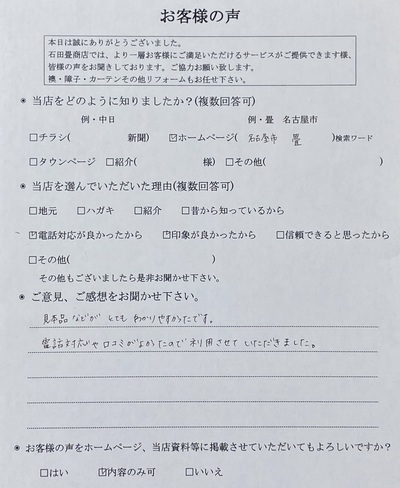 お客様の声
本日は誠にありがとうございました。
石田畳商店では、より一層お客様にご満足いただけるサービスがご提供できます様、
皆様の声をお聞きしております。ご協力お願い致します。
襖・障子・カーテンその他リフォームもお任せ下さい。
◉ 当店をどのように知りましたか?(複数回答可)
例・中日 例・畳 名古屋市
□チラシ( 新聞) ☑ホームページ( 名古屋市 畳 )検索ワード
□タウンページ □紹介( 様) □その他( )
◉ 当店を選んでいただいた理由(複数回答可)
□地元 □ハガキ □紹介 □昔から知っているから
☑電話対応が良かったから ☑印象が良かったから □信頼できると思ったから
□その他( )
その他もございましたら是非お聞かせ下さい。
◉ ご意見、ご感想をお聞かせ下さい。
見本品などが とても わかりやすかったです。
電話対応や口コミがよかったので利用させていただきました。
◉ お客様の声をホームページ、当店資料等に掲載させていただいてもよろしいですか?
□はい ☑内容のみ可 □いいえ